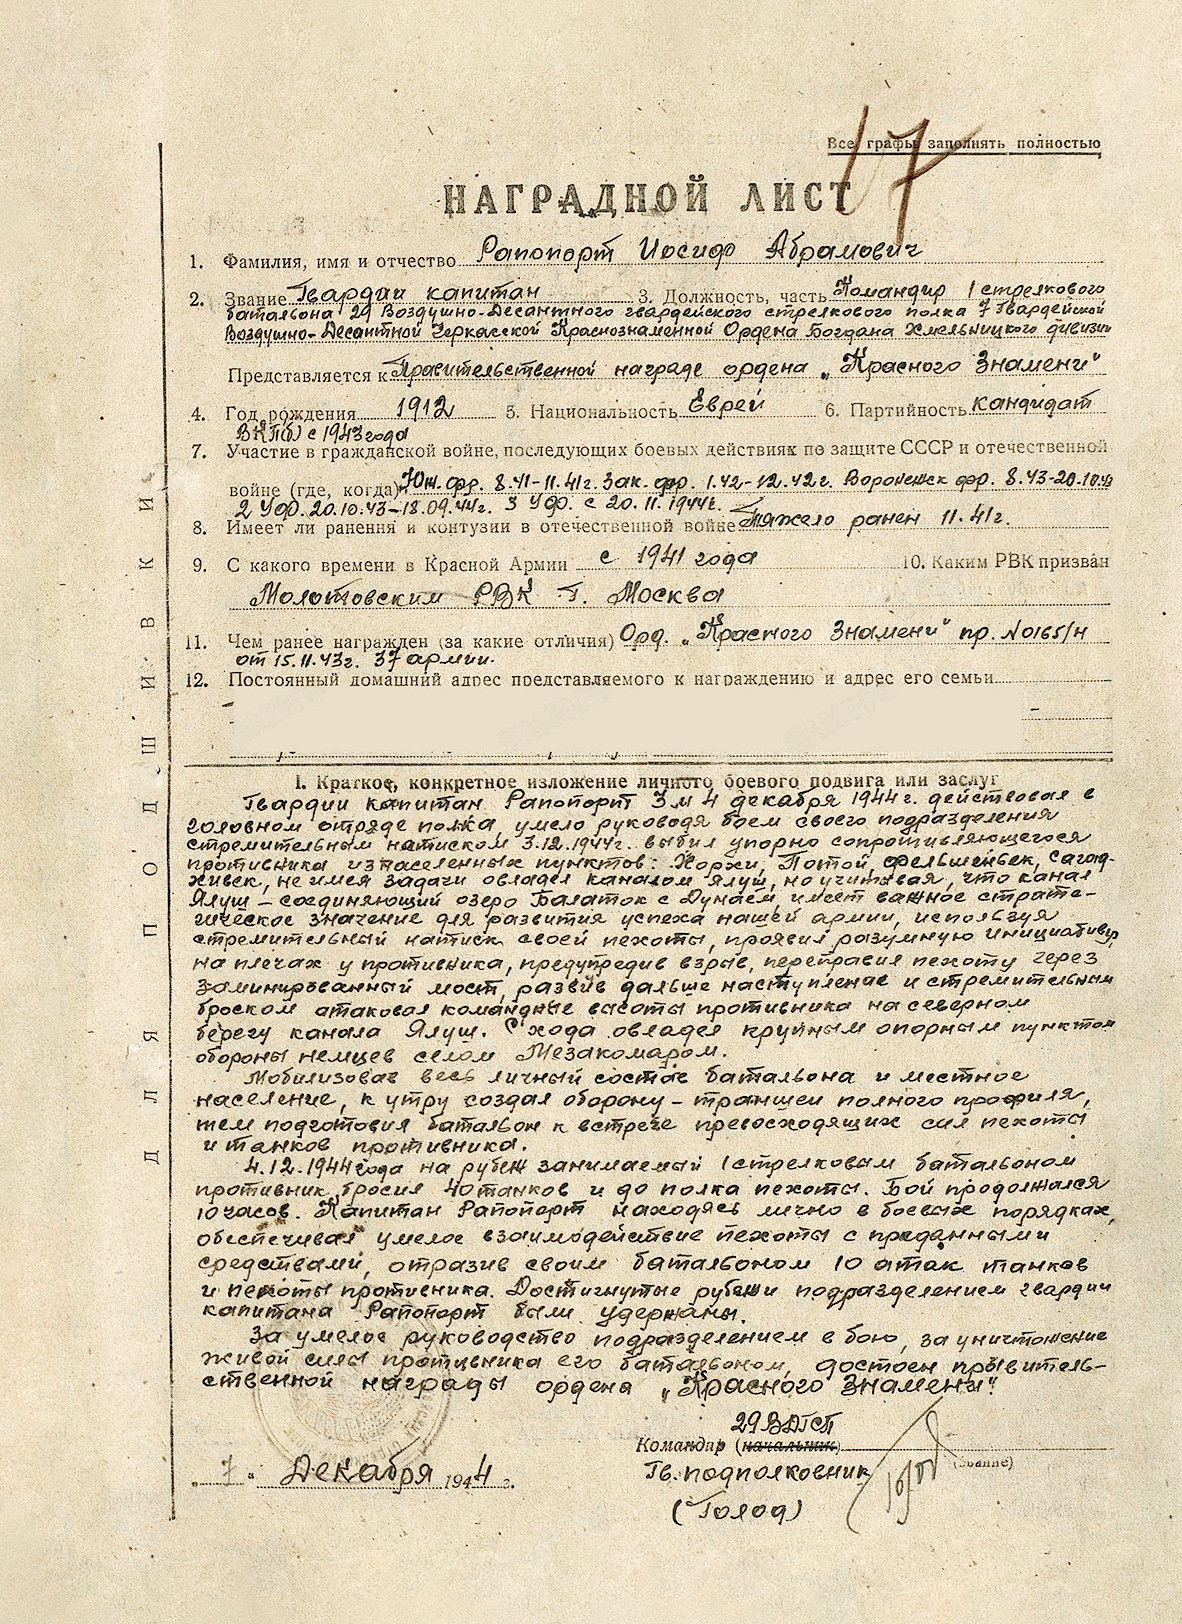 17
Все графы заполнять полностью
НАГРАДНОЙ ЛИСТ
1. Фамилия, имя и отчество Рапопорт Иосиф Абрамович
2. Звание Гвардии капитан 3. Должность, часть Командир 1 стрелкового
батальона 29 Воздушно-Десантного гвардейского стрелкового полка 7 Гвардейской
Воздушно-Десантной Черкасской Краснознаменной Ордена Богдана Хмельницкого дивизии
Представляется к Правительственной награде ордена „Красного Знамени"
4. Год рождения 1912 5. Национальность Еврей 6. Партийность кандидат
ВКП(б) с 1943 года
7. Участие в гражданской войне, последующих боевых действиях по защите СССР и отечественной
войне (где, когда) Юж. фр. 8.41-11.41г. Зак. фр. 1.42-12.42г. Воронежск фр. 8.43-20.10.43
2 Уфр. 20.10.43-18.09.44г. 3 Уфр. с 20.11.1944г.
8. Имеет ли ранения и контузии в отечественной войне Тяжело ранен 11.41г.
9. С какого времени в Красной Армии с 1941 года 10. Каким РВК призван
Молотовским РВК г. Москва
11. Чем ранее награжден (за какие отличия) Орд. „Красного Знамени" пр. №0165/н
от 15.11.43г. 37 армии.
12. Постоянный домашний адрес представляемого к награждению и адрес его семьи
I. Краткое, конкретное изложение личного боевого подвига или заслуг
Гвардии капитан Рапопорт 3 и 4 декабря 1944г. действовал в
головном отряде полка, умело руководя боем своего подразделения
стремительным натиском 3.12.1944г. выбил упорно сопротивляющегося
противника из населенных пунктов: Жоржи, Потой, Фельшенбек, Сагад-
живск, не имея задачи овладел каналом Ялуш, но учитывая, что канал
Ялуш - соединяющий озеро Балатон с Дунаем, имеет важное страте-
гическое значение для развития успеха нашей армии, используя
стремительный натиск своей пехоты, проявил разумную инициативу,
на плечах у противника, предупредив взрыв, переправил пехоту через
заминированный мост, развив дальше наступление и стремительным
броском атаковал командные высоты противника на северном
берегу канала Ялуш. С хода овладел крупным опорным пунктом
обороны немцев селом Мезакомаром.
Мобилизовав весь личный состав батальона и местное
население, к утру создал оборону - траншеи полного профиля,
тем подготовил батальон к встрече превосходящих сил пехоты
и танков противника.
4.12.1944 года на рубеж занимаемый 1 стрелковым батальоном
противник бросил 40 танков и до полка пехоты. Бой продолжался
10 часов. Капитан Рапопорт находясь лично в боевых порядках,
обеспечивал умелое взаимодействие пехоты с приданными
средствами, отразив своим батальоном 10 атак танков
и пехоты противника. Достигнутые рубежи подразделением гвардии
капитана Рапопорт были удержаны.
За умелое руководство подразделением в бою, за уничтожение
живой силы противника его батальоном, достоен правитель-
ственной награды ордена „Красного Знамени".
29 ВДГСП
Командир (начальник)
(звание)
„ 7 " Декабря 1944 г.
Гв. подполковник
(Голод)
ДЛЯ ПОДШИВКИ